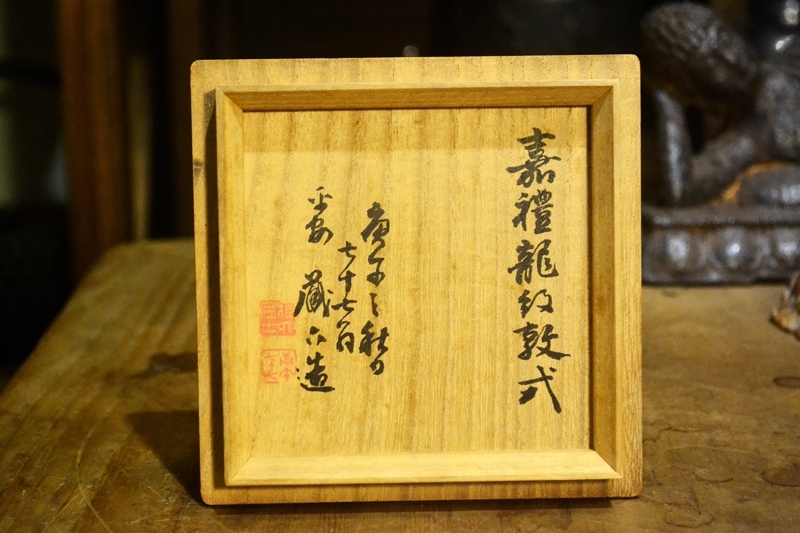 嘉禮龍紋敦式
庚午之秋日
七十七翁
平安 藏六造